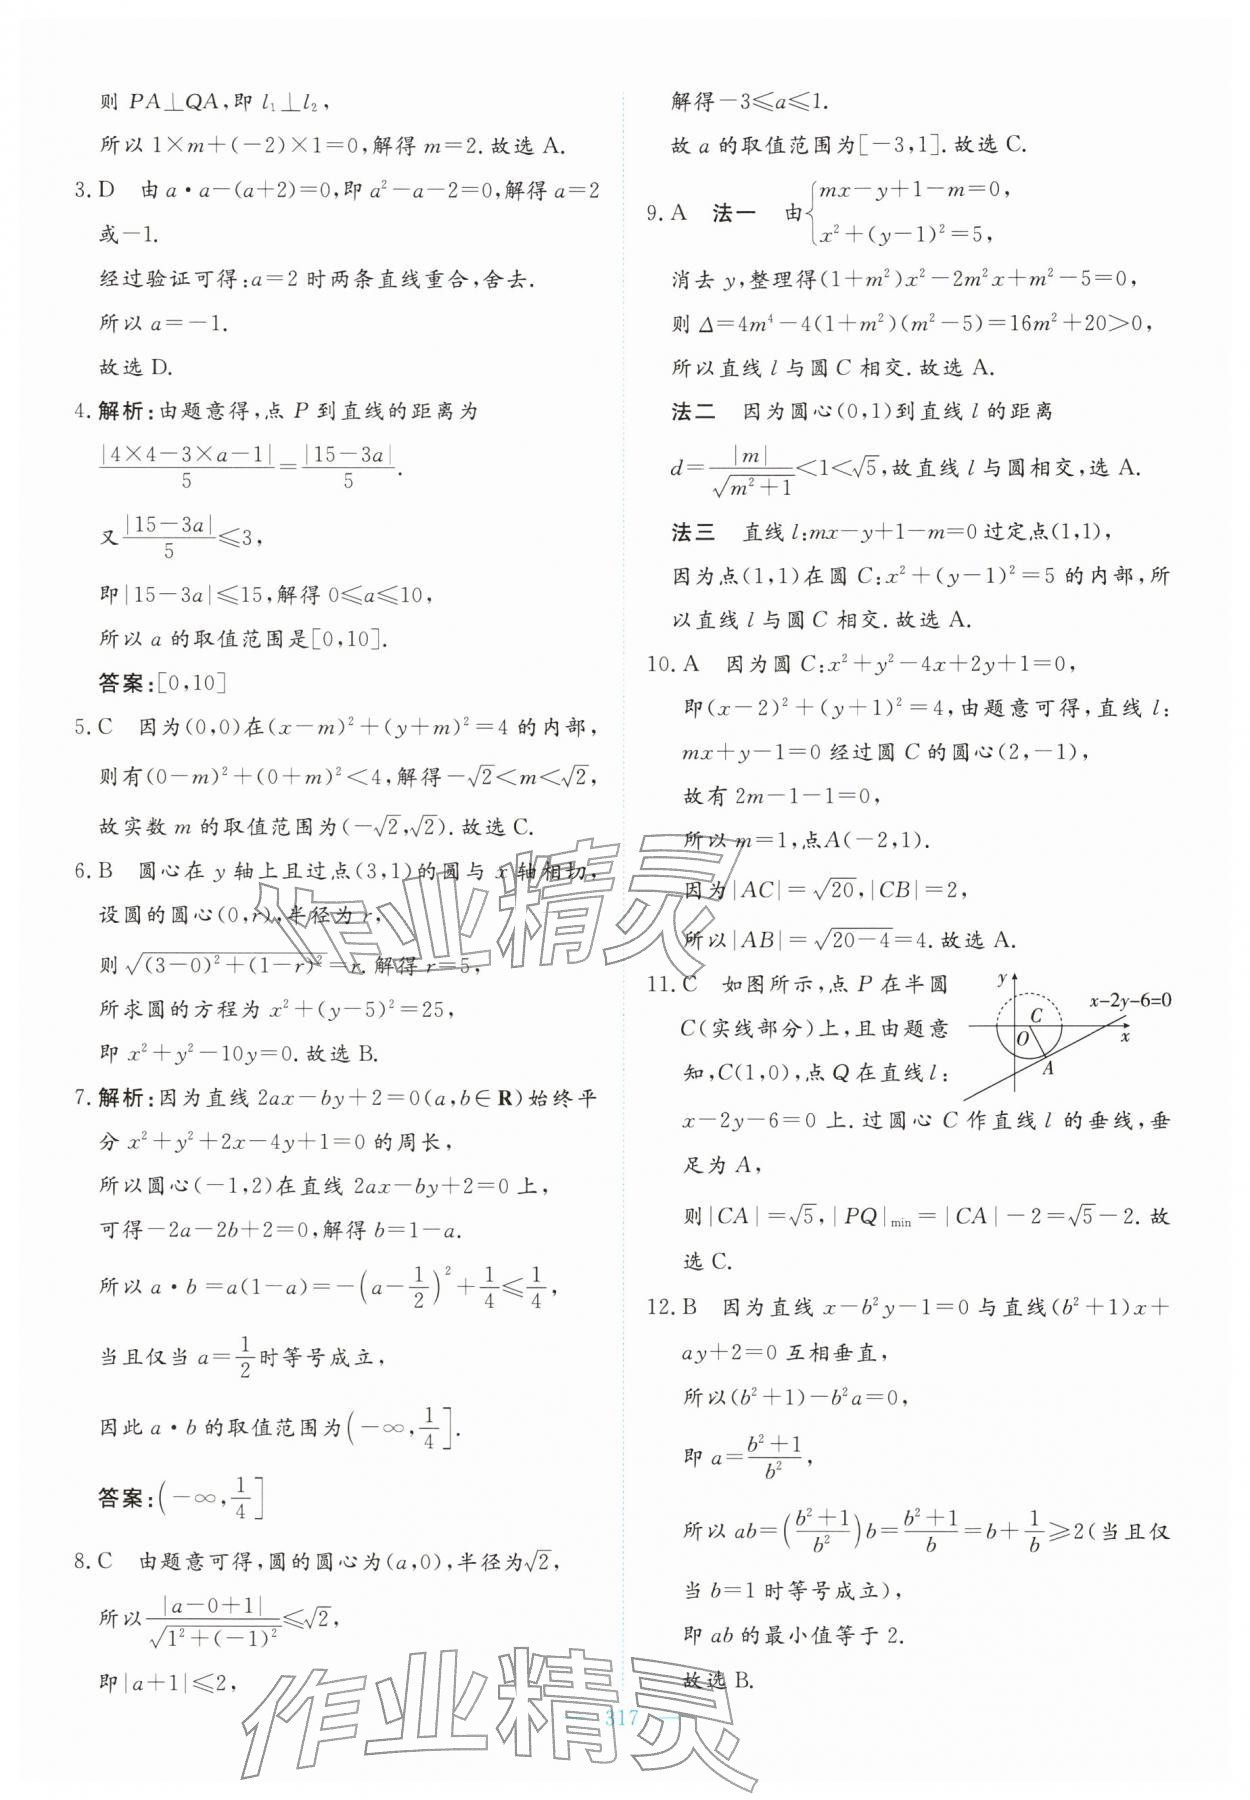 则 PA⊥QA,即 l₁⊥l₂,
所以 1×m+(-2)×1=0,解得 m=2.故选 A.
3. D 由 a·a-(a+2)=0,即 a²-a-2=0,解得 a=2
或-1.
经过验证可得:a=2 时两条直线重合,舍去.
所以 a=-1.
故选 D.
4. 解析:由题意得,点 P 到直线的距离为
|4×4-3×a-1|/5=|15-3a|/5.
又|15-3a|/5≤3,
即|15-3a|≤15,解得 0≤a≤10,
所以 a 的取值范围是[0,10].
答案:[0,10]
5. C 因为(0,0)在(x-m)²+(y+m)²=4 的内部,
则有(0-m)²+(0+m)²<4,解得-√2<m<√2,
故实数 m 的取值范围为(-√2,√2).故选 C.
6. B 圆心在 y 轴上且过点(3,1)的圆与 x 轴相切,
设圆的圆心(0,r),半径为 r,
则√((3-0)²+(1-r)²)=r.解得 r=5,
所求圆的方程为 x²+(y-5)²=25,
即 x²+y²-10y=0.故选 B.
7. 解析:因为直线 2ax-by+2=0(a,b∈R)始终平
分 x²+y²+2x-4y+1=0 的周长,
所以圆心(-1,2)在直线 2ax-by+2=0 上,
可得-2a-2b+2=0,解得 b=1-a.
所以 a·b=a(1-a)=-(a-1/2)²+1/4≤1/4,
当且仅当 a=1/2时等号成立,
因此 a·b 的取值范围为(-∞,1/4].
答案:(-∞,1/4]
8. C 由题意可得,圆的圆心为(a,0),半径为√2,
所以|a-0+1|/√(1²+(-1)²)≤√2,
即|a+1|≤2,
解得-3≤a≤1.
故 a 的取值范围为[-3,1].故选 C.
9. A 法一 由{mx-y+1-m=0,
x²+(y-1)²=5,
消去 y,整理得(1+m²)x²-2m²x+m²-5=0,
则 Δ=4m⁴-4(1+m²)(m²-5)=16m²+20>0,
所以直线 l 与圆 C 相交.故选 A.
法二 因为圆心(0,1)到直线 l 的距离
d=|m|/√(m²+1)<1<√5,故直线 l 与圆相交,选 A.
法三 直线 l:mx-y+1-m=0 过定点(1,1),
因为点(1,1)在圆 C:x²+(y-1)²=5 的内部,所
以直线 l 与圆 C 相交.故选 A.
10. A 因为圆 C:x²+y²-4x+2y+1=0,
即(x-2)²+(y+1)²=4,由题意可得,直线 l:
mx+y-1=0 经过圆 C 的圆心(2,-1),
故有 2m-1-1=0,
所以 m=1,点A(-2,1).
因为|AC|=√20,|CB|=2,
所以|AB|=√(20-4)=4.故选 A.
11. C 如图所示,点 P 在半圆
C(实线部分)上,且由题意
知,C(1,0),点 Q 在直线 l:
y
x-2y-6=0
C
O
x
A
x-2y-6=0 上.过圆心 C 作直线 l 的垂线,垂
足为 A,
则|CA|=√5,|PQ|min=|CA|-2=√5-2.故
选 C.
12. B 因为直线 x-b²y-1=0 与直线(b²+1)x+
ay+2=0 互相垂直,
所以(b²+1)-b²a=0,
即 a=(b²+1)/b²,
所以 ab=((b²+1)/b²)b=(b²+1)/b=b+1/b≥2(当且仅
当 b=1 时等号成立),
即 ab 的最小值等于 2.
故选 B.
作业精灵
作业精灵
317